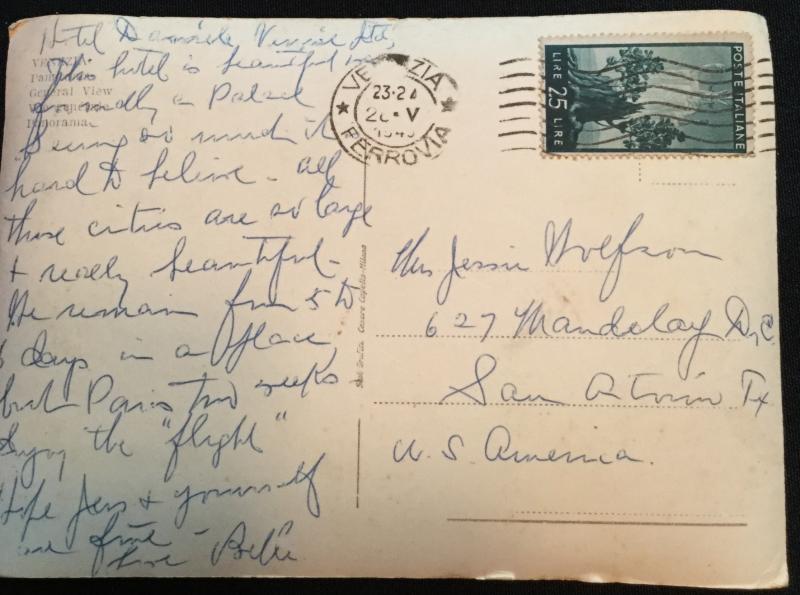 Hotel Danieli, Venice Italy
This hotel is beautiful
really a Palace
Seeing so much it
hard to believe - all
these cities are so large
+ really beautiful -
We remain from 5 to
6 days in a place
but Paris two weeks -
the "flight"
Hope Jess + yourself
are fine -
love -
VENEZIA
General View
Panorama
VENEZIA
23-24
V
FERROVIA
POSTE ITALIANE
LIRE 25 LIRE
Mrs Jessie Wolfson
627 Mandalay Dr,
San Antonio Tx
U.S. America.